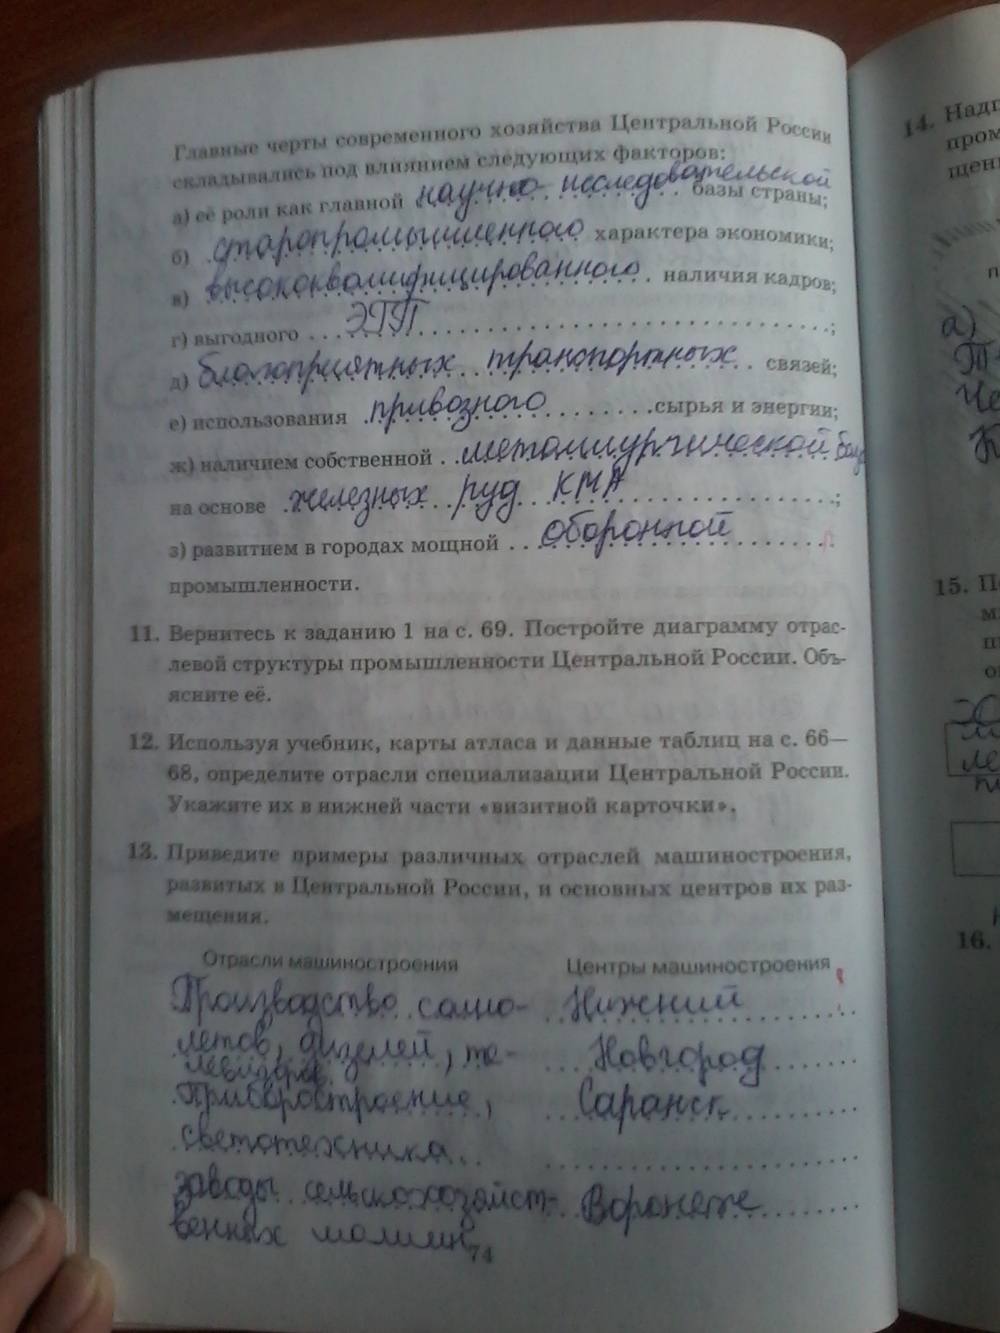 Главные черты современного хозяйства Центральной России
складывались под влиянием следующих факторов:
а) её роли как главной научно-исследовательской базы страны;
б) старопромышленного характера экономики;
в) высококвалифицированного наличия кадров;
г) выгодного ЭГП;
д) благоприятных транспортных связей;
е) использования привозного сырья и энергии;
ж) наличием собственной металлургической базы
на основе железных руд КМА;
з) развитием в городах мощной оборонной
промышленности.
11. Вернитесь к заданию 1 на с. 69. Постройте диаграмму отрас-
левой структуры промышленности Центральной России. Объ-
ясните её.
12. Используя учебник, карты атласа и данные таблиц на с. 66—
68, определите отрасли специализации Центральной России.
Укажите их в нижней части «визитной карточки».
13. Приведите примеры различных отраслей машиностроения,
развитых в Центральной России, и основных центров их раз-
мещения.
Отрасли машиностроения Центры машиностроения
Производство само- Нижний
летов, дизелей, те- Новгород
левизоров.
Приборостроение, Саранск
светотехника
заводы сельскохозяйст- Воронеж
венных машин
74
14. Надп
пром
щен
п
а)
15. П
м
п
о
16.